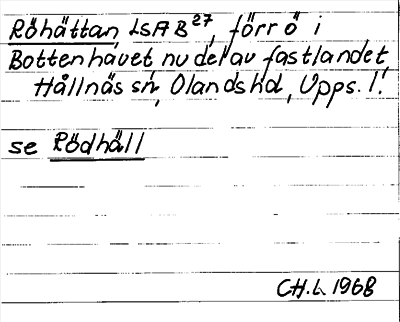 Röhättan, LSA B27, förr ö i
Bottenhavet, nu del av fastlandet,
Hållnäs sn, Olands hd, Upps. l.
se Rödhäll
CH.L 1968